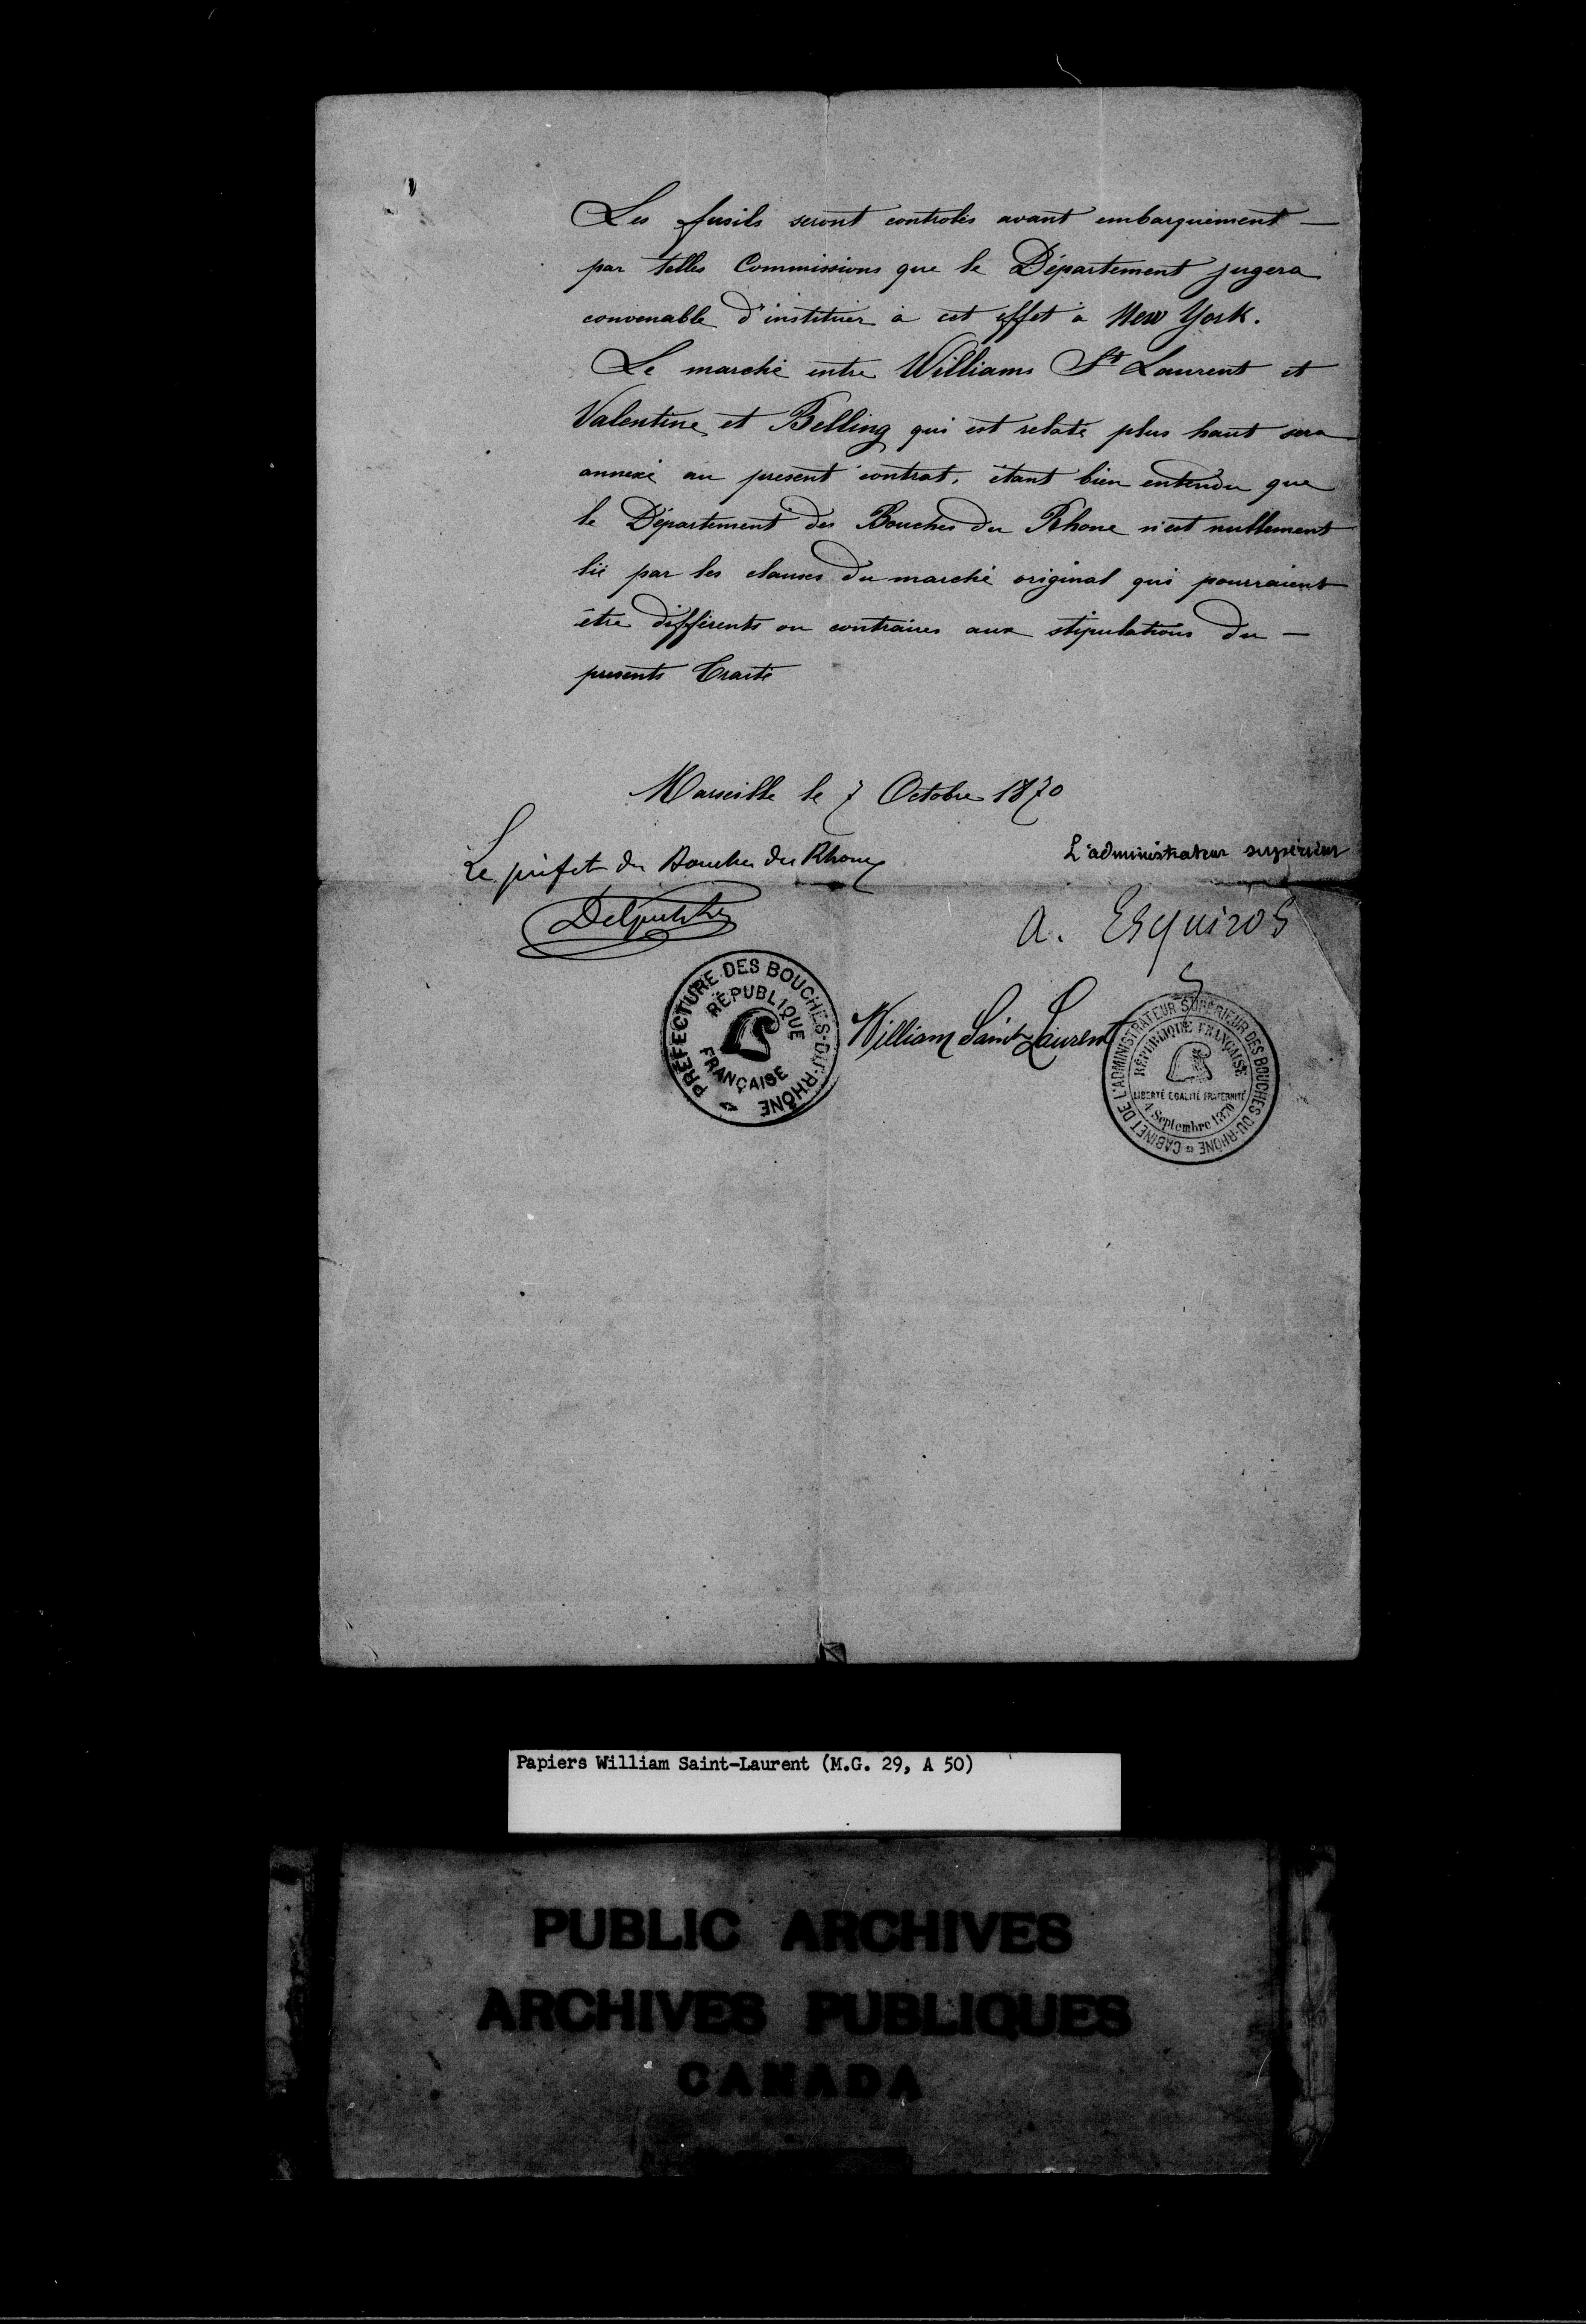 Les fusils seront controlés avant embarquement —
par telles Commissions que le Département jugera
convenable d'instituer à cet effet à New York.
Le marché entre Williams St Laurent et
Valentine et Belling qui est relaté plus haut sera
annexé au présent contrat, étant bien entendu que
le Département des Bouches du Rhone n'est nullement
lié par les clauses du marché original qui pourraient
être différents ou contraires aux stipulations du —
présents Traité
Marseille le 7 Octobre 1870
Le préfet des Bouches du Rhone
L'administrateur supérieur
Delpech
A. Esquiros
William Saint-Laurent
PRÉFECTURE DES BOUCHES-DU-RHÔNE
RÉPUBLIQUE FRANÇAISE
CABINET DE L'ADMINISTRATEUR SUPÉRIEUR DES BOUCHES-DU-RHÔNE
RÉPUBLIQUE FRANÇAISE
LIBERTÉ EGALITÉ FRATERNITÉ
4 Septembre 1870
Papiers William Saint-Laurent (M.G. 29, A 50)
PUBLIC ARCHIVES
ARCHIVES PUBLIQUES
CANADA